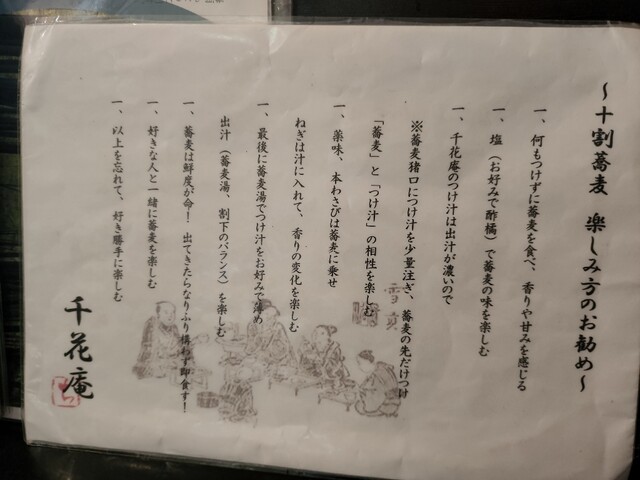 ～十割蕎麦　楽しみ方のお勧め～
一、何もつけずに蕎麦を食べ、香りや甘みを感じる
一、塩（お好みで酢橘）で蕎麦の味を楽しむ
一、千花庵のつけ汁は出汁が濃いので
※蕎麦猪口につけ汁を少量注ぎ、蕎麦の先だけつけ
「蕎麦」と「つけ汁」の相性を楽しむ
一、薬味、本わさびは蕎麦に乗せ
ねぎは汁に入れて、香りの変化を楽しむ
一、最後に蕎麦湯でつけ汁をお好みで薄め
出汁（蕎麦湯、割下のバランス）を楽しむ
一、蕎麦は鮮度が命！　出てきたらなりふり構わず即食す！
一、好きな人と一緒に蕎麦を楽しむ
一、以上を忘れて、好き勝手に楽しむ
千花庵